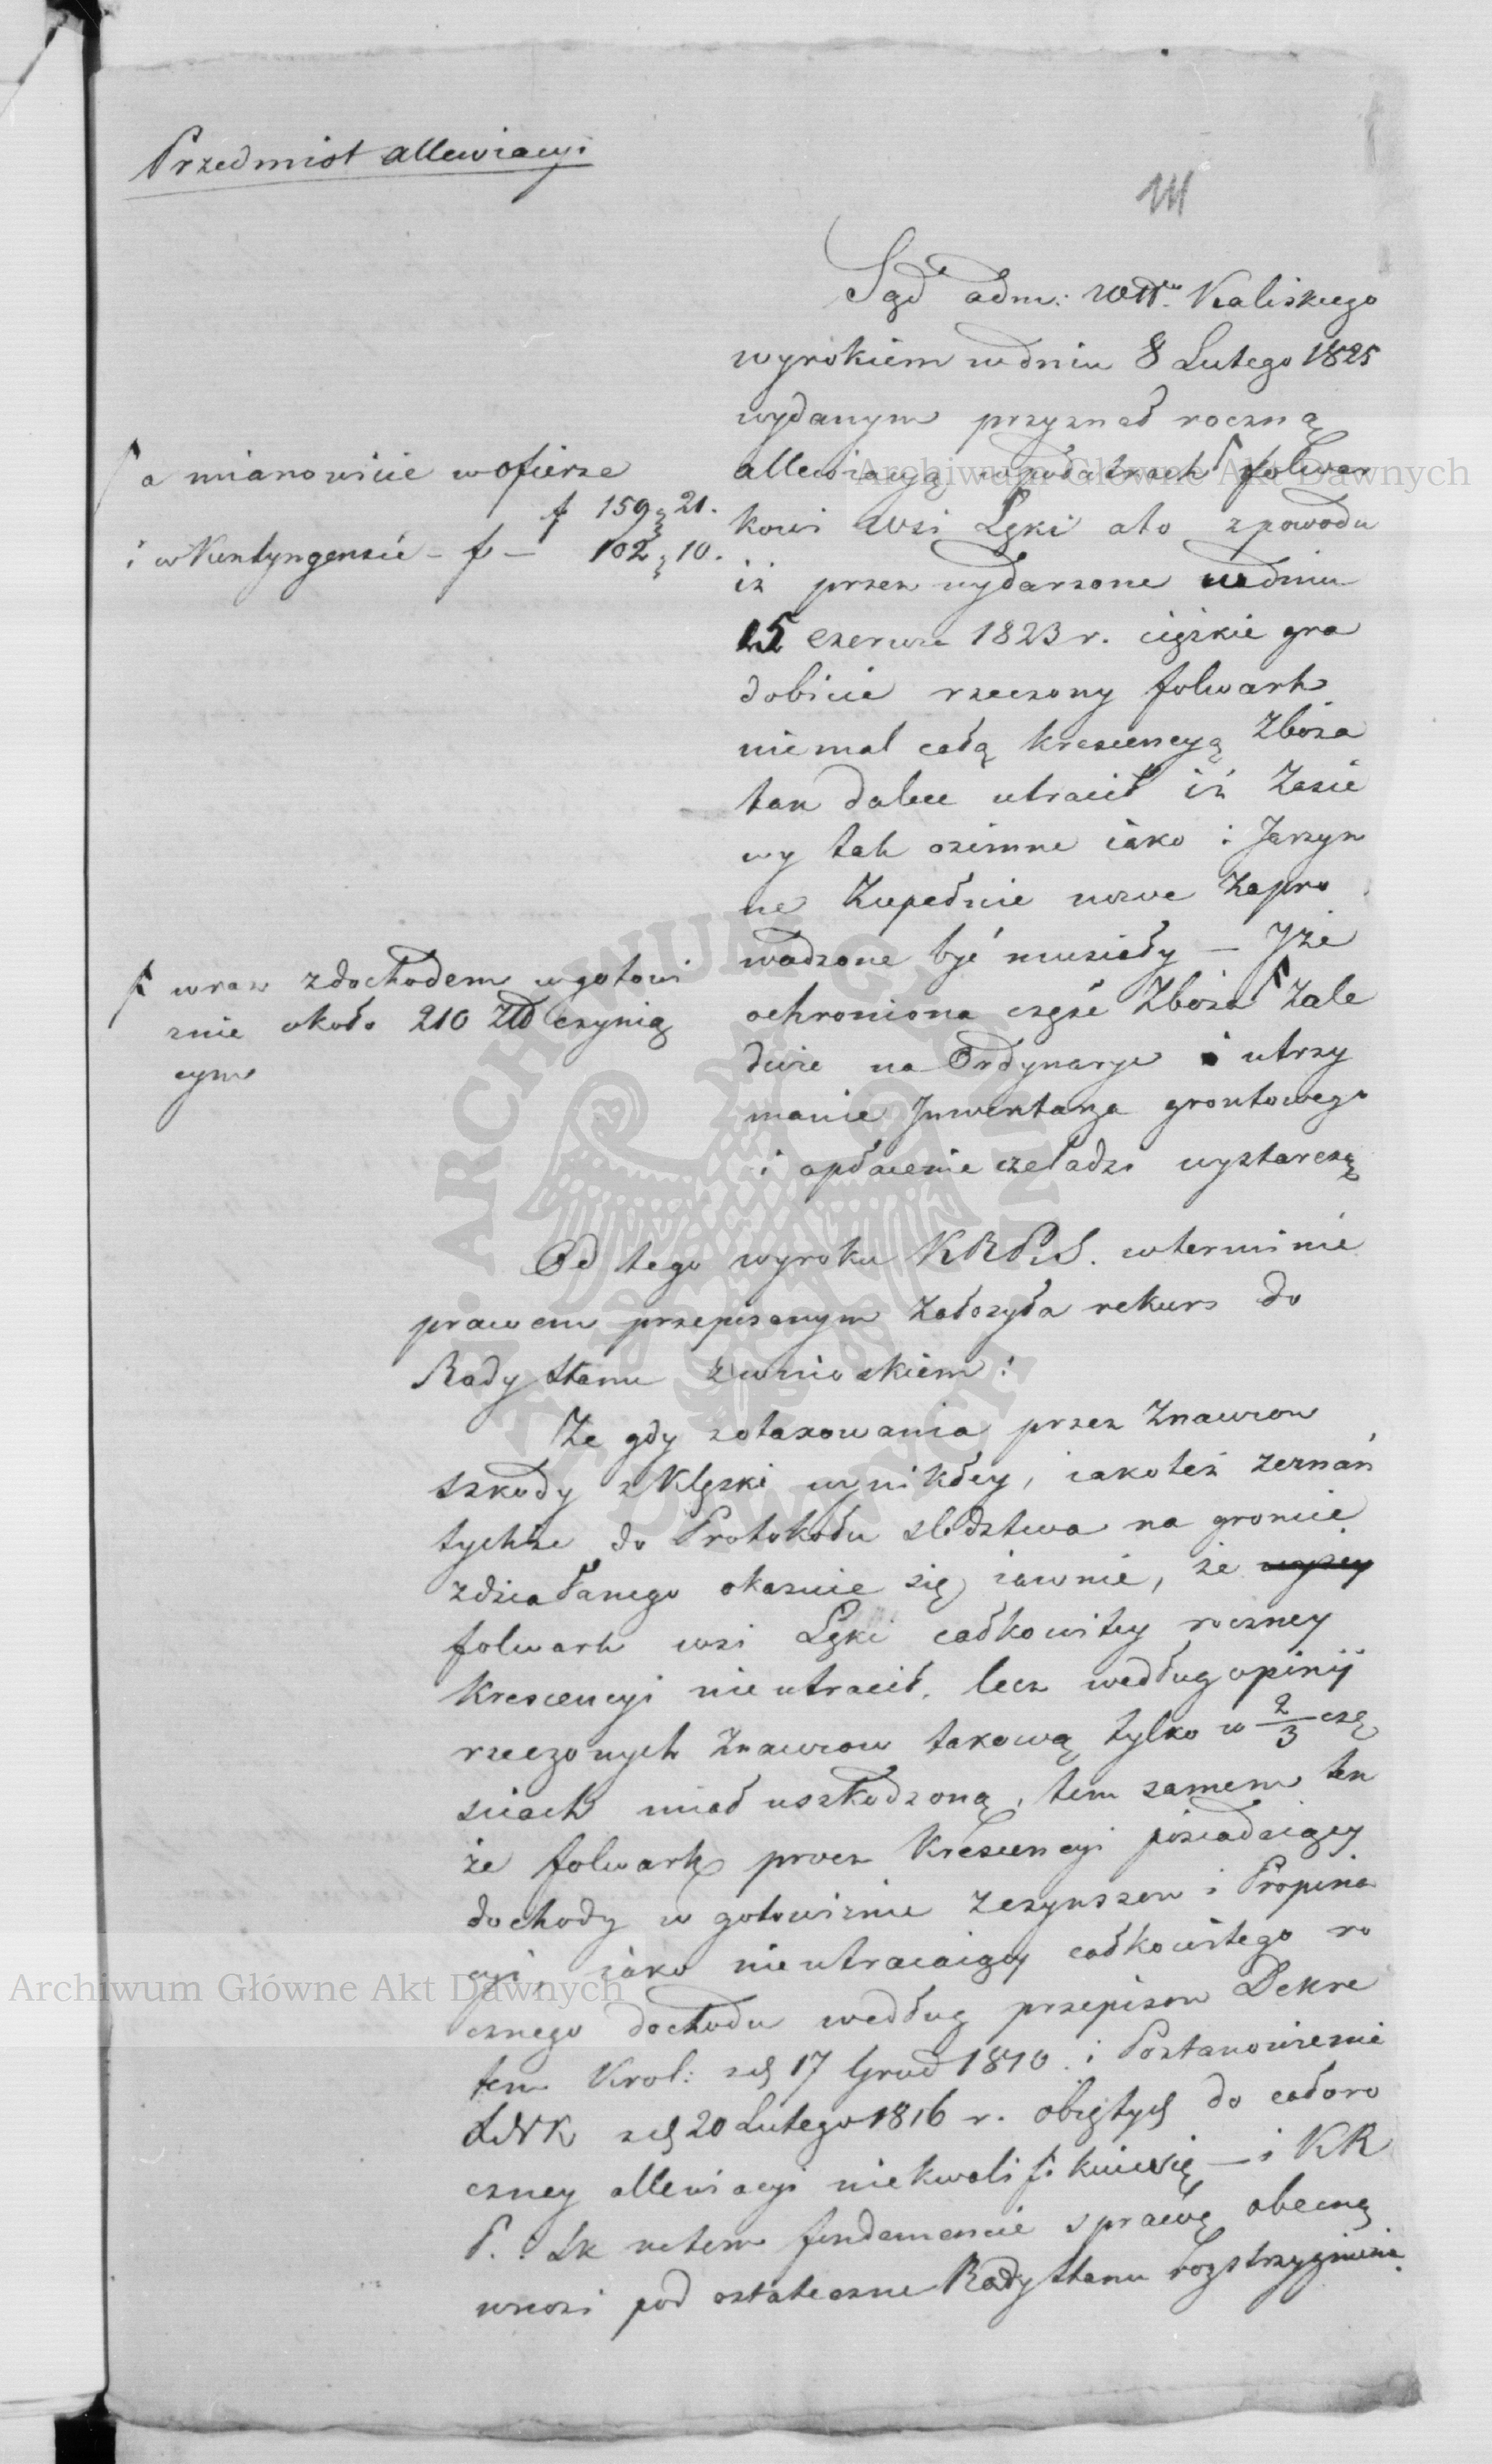 Przedmiot allewiacyi
111
Sąd adm: Wdt. Kaliskiego
wyrokiem w dniu 8 Lutego 1825
wydanym przyznał roczną
allewiacyą w podatkach folwar
kowi wsi Łęki a to z powodu
iż przez wydarzone w dniu
15 Czerwca 1823 r. ciężkie gra
dobicie rzeczony folwark
niemal całą krescencyą Zboża
tak dalece utracił iż Zasie
wy tak ozimne iako i Jarzyn
ne Zupełnie nowe Zapro
wadzone być musiały — Iże
ochroniona część Zboża Zale
dwie na Ordynarye i utrzy
manie Inwentarza grontowego
i opłacenie czeladzi wystarczą
a mianowicie w ofierze
f 159 g 21.
i w Kontyngensie – f – 102 g 10.
wraz z dochodem w gotowi
znie około 210 Złł czynią
cym
Od tego wyroku KRP.S. w terminie
prawem przepisanym Założyła rekurs do
Rady Stanu z wnioskiem:
Że gdy z otaxowania przez Znawcow
szkody z Klęski wynikłey, iakoteż zeznań
tychże do Protokołu śledztwa na groncie
zdziałanego okazuie się iawnie, że
folwark wsi Łęki całkowitey roczney
Krescencyi nie utracił, lecz według opinij
rzeczonych Znawcow takową tylko w 2/3 czę
ściach miał uszkodzoną, tem samem ten
że folwark procz Krescencyi posiadaiący
dochody w gotowiznie z czynszow i Propina
cyi, iako nieutracaiący całkowitego ro
cznego dochodu według przepisow Dekre
tem Krol: z d 17 Grud 1810 i Postanowienie
XNK z d 20 Lutego 1816 r. obiętych do całoro
czney allewiacyi niekwalifikuie się — i KR
P. i Sk na tem fundamencie sprawę obecną
wnosi pod ostateczne Rady Stanu rozstrzygnienie.
Archiwum Główne Akt Dawnych
Archiwum Główne Akt Dawnych